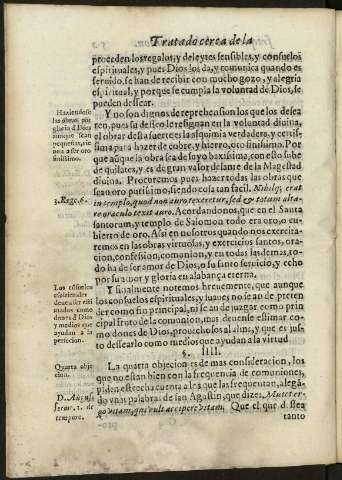 Tratado cerca de la
proceden los regalos, y deleytes sensibles, y consuelos
espirituales, y pues Dios los da, y comunica quando es
seruido, se han de recibir con mucho gozo, y alegria
espiritual, y porque se cumpla la voluntad de Dios, se
pueden dessear.
Haziendose
las obras por
gloria d Dios
aunque sean
pequeñas, vie
nen a ser oro
finissimo.
Y no son dignos de reprehension los que los dessea
ren, pues su desseo le resignan en la voluntad diuina,
el obrar desta suerte es la alquimia verdadera, y certis-
sima para hazer de cobre, y hierro, oro finissimo. Por
que aũque la obra sea de suyo baxissima, con esto sube
de quilates, y es de gran valor delante de la Magestad
diuina. Procuremos pues hazer todas las obras que
sean oro purissimo, siendo cosa tan facil. Nihilq; erat
3. Reg. 6.
in templo, quod non auro tegeretur, sed & totum alta-
re oraculo texit auro. Acordandonos, que en el Sancta
sanctorum, y templo de Salomon todo era oro, o cu-
bierto de oro. Assi en nosotros quando nos exercita-
remos en las obras virtuosas, y exercicios santos, ora-
cion, confession, comunion, y en todas las demas, to-
do ha de ser amor de Dios, o su santo seruicio, y echo
por su amor y gloria en alabança eterna.
Los cõsuelos
espirituales
deuẽ ser esti
mados como
dones d Dios
y medios que
ayudan a la
perfecion.
Y finalmente notemos breuemente, que aunque
los consuelos espirituales, y suaues no se an de preten
der como fin principal, ni se an de juzgar como prin
cipal fruto de la comunion, mas deuense estimar co-
mo dones de Dios, prouechosos al alma, y que es jus-
to dessearlo como medios que ayudan a la virtud
§. IIII.
Quarta obje
cion.
La quarta objecion es de mas consideracion, los
que no estan bien con la frequencia de comuniones,
piden estrecha cuenta a los que las frequentan, alegã-
D. Augus.
serm. 1. de
tempore.
do vnas palabras de san Agustin, que dize: Mutet er-
go vitam, qui vult accipere vitam. Que el que dessea
tanto